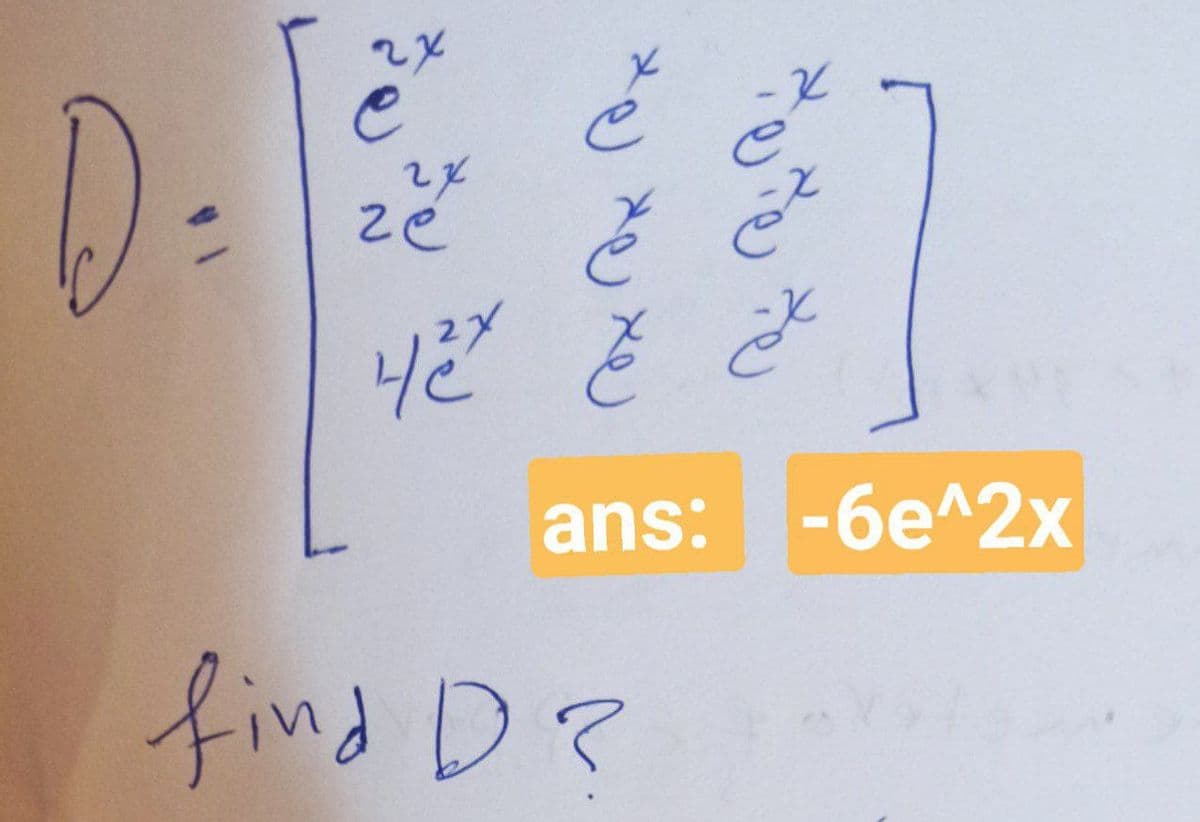 D = [ e^2x e^x e^-x
2e^2x e^x e^-x
4e^2x e^x e^-x ]
ans: -6e^2x
find D ?